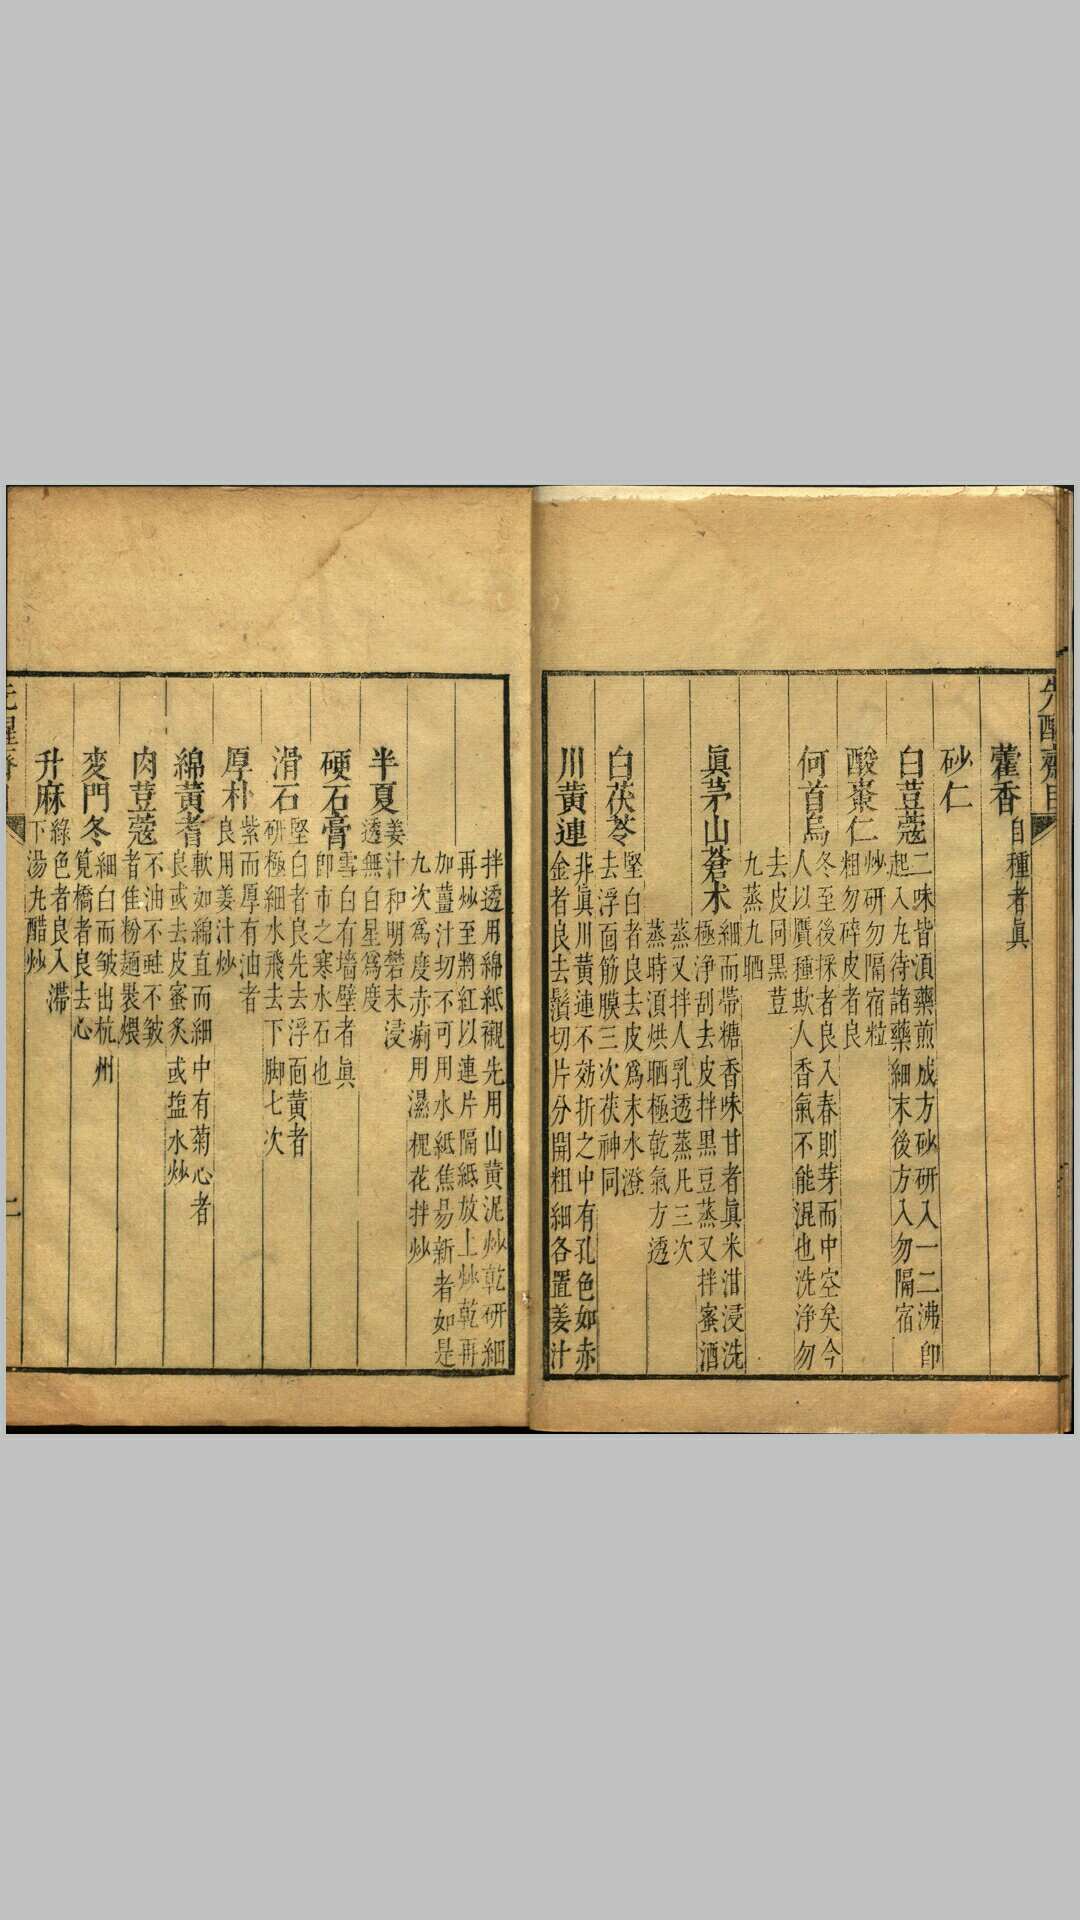 先醒齋
藿香自種者眞
砂仁
白荳蔻二味皆湏藥煎成方砂研入一二沸卽
起入丸待諸藥細末後方入勿隔宿
酸棗仁炒研勿隔宿粒
粗勿碎皮者良
何首烏冬至後採者良入春則芽而中空矣今
人以贋種欺人香氣不能混也洗淨勿
去皮同黒荳
九蒸九晒
眞茅山蒼术細而帶糖香味甘者眞米泔浸洗
極淨刮去皮拌黒豆蒸又拌蜜酒
蒸又拌人乳透蒸凡三次
蒸時湏烘晒極乾氣方透
白茯苓堅白者良去皮爲末水澄
去浮面筋膜三次茯神同
川黄連非眞川黄連不効折之中有孔色如赤
金者良去鬚切片分開粗細各置姜汁
拌透用綿紙襯先用山黄泥炒乾研細
再炒至將紅以連片隔紙放上炒乾再
加薑汁切不可用水紙焦易新者如是
九次爲度赤痢用濕槐花拌炒
半夏姜汁和明礬末浸
透無白星爲度
硬石膏雪白有墻壁者眞
卽市之寒水石也
滑石堅白者良先去浮面黄者
研極細水飛去下脚七次
厚朴紫而厚有油者
良用姜汁炒
綿黄耆軟如綿直而細中有菊心者
良或去皮蜜炙或塩水炒
肉荳蔻不油不蛀不皺
者佳粉麺裹煨
麥門冬細白而皺出杭州
筧橋者良去心
升麻綠色者良入滯
下湯丸醋炒